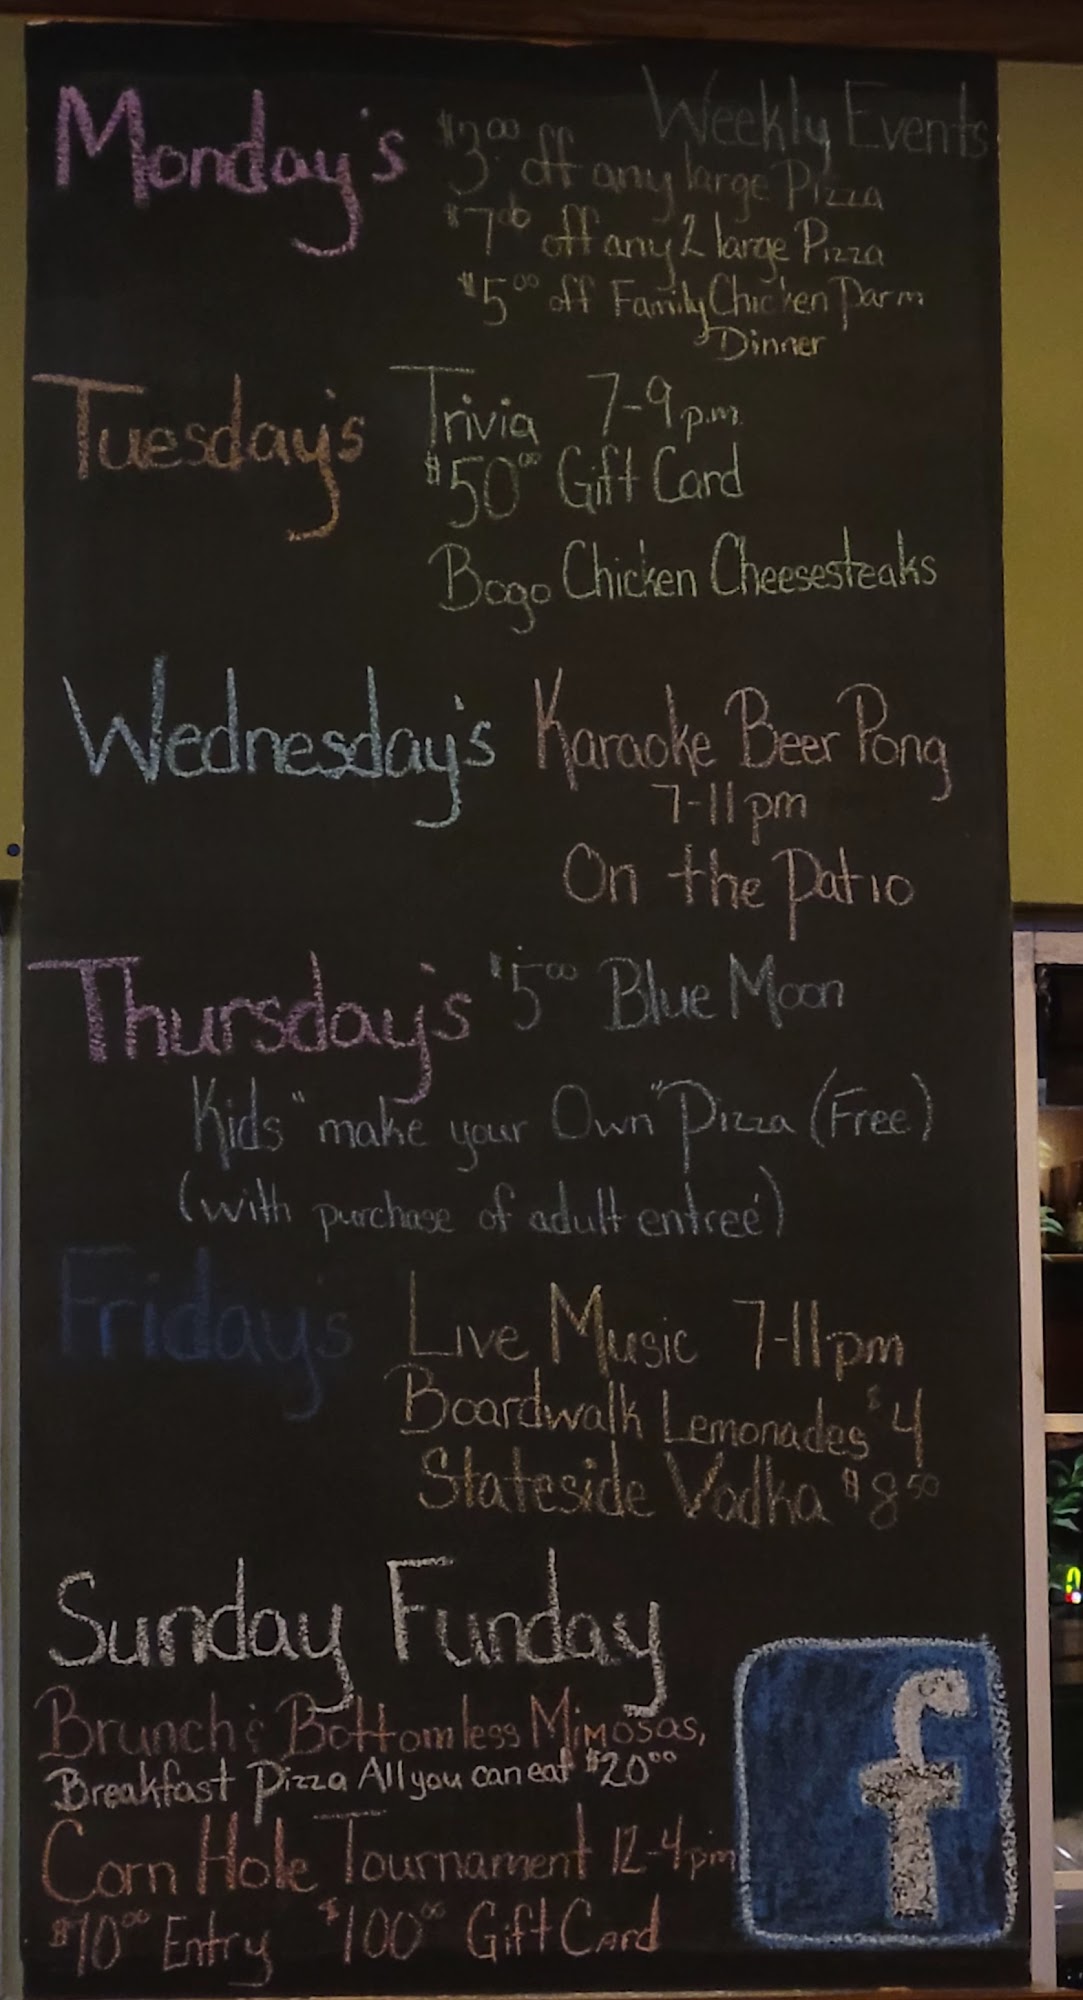 Weekly Events
Monday's
$3.00 off any large Pizza
$7.00 off any 2 large Pizza
$5.00 off Family Chicken Parm
Dinner
Tuesday's
Trivia 7-9 p.m.
$50.00 Gift Card
Bogo Chicken Cheesesteaks
Wednesday's
Karaoke Beer Pong
7-11 pm
On the Patio
Thursday's
$5.00 Blue Moon
Kids "make your Own" Pizza (Free)
(with purchase of adult entreé)
Friday's
Live Music 7-11 pm
Boardwalk Lemonades $4
Stateside Vodka $8.50
Sunday Funday
Brunch & Bottomless Mimosas,
Breakfast Pizza All you can eat $20.00
Corn Hole Tournament 12-4 pm
$10.00 Entry $100.00 Gift Card
f